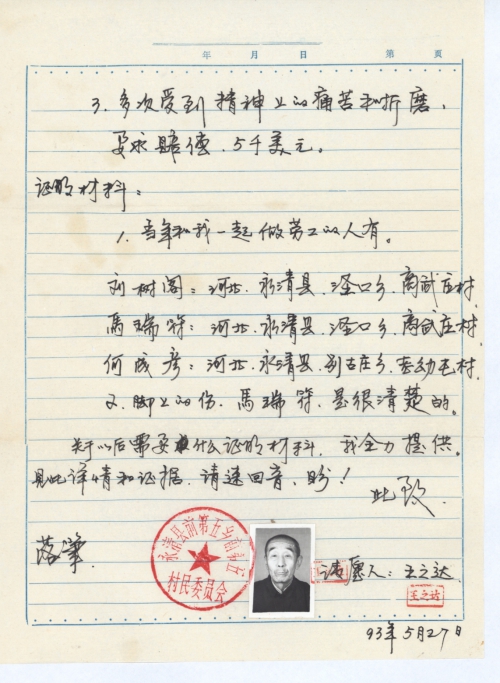 年 月 日 第 页
3. 多次受到精神上的痛苦和折磨，
要求赔偿.5千美元。
证明材料：
1. 当年和我一起做劳工的人有。
刘树阁：河北.永清县.泾口乡.商武庄村.
馬瑞符：河北.永清县.泾口乡.商武庄村.
何成彦：河北.永清县.别古庄乡.村.
2. 脚上的伤.馬瑞符.是很清楚的。
关于以后需要什么证明材料.我全力提供.
见此详情和证据.请速回音.盼！
此致
落笔.
永清县前第五乡前第五
村民委员会
请愿人：王之达.
王之达
93年5月27日